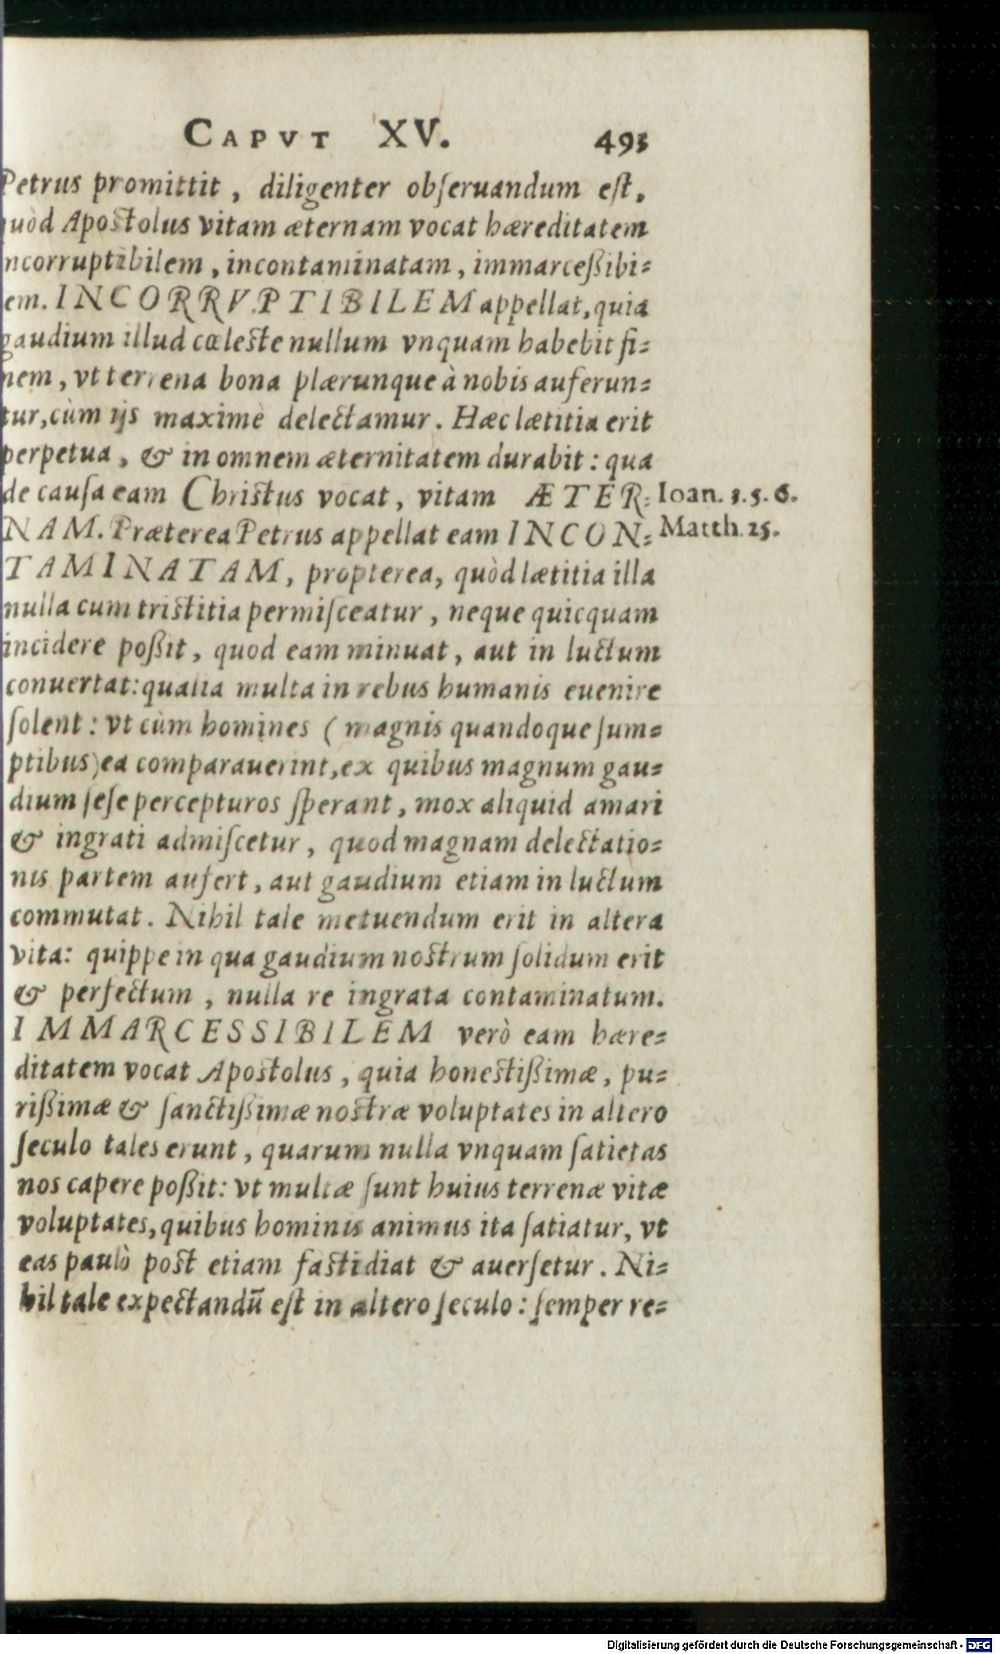 CAPVT XV. 493
Petrus promittit, diligenter obſeruandum eſt,
quòd Apoſtolus vitam æternam vocat hæreditatem
ncorruptibilem, incontaminatam, immarceßibi-
em. INCORRVPTIBILEM appellat, quia
gaudium illud cœleſte nullum vnquam habebit fi-
nem, vt terrena bona plærunque à nobis auferun-
tur, cùm ijs maximè delectamur. Hæc lætitia erit
perpetua, & in omnem æternitatem durabit: qua
de cauſa eam Chriſtus vocat, vitam ÆTER- Ioan. 3.5.6.
NAM. Præterea Petrus appellat eam INCON- Matth. 25.
TAMINATAM, propterea, quòd lætitia illa
nulla cum triſtitia permiſceatur, neque quicquam
incidere poßit, quod eam minuat, aut in luctum
conuertat: qualia multa in rebus humanis euenire
ſolent: vt cùm homines (magnis quandoque ſum-
ptibus) ea comparauerint, ex quibus magnum gau-
dium ſeſe percepturos ſperant, mox aliquid amari
& ingrati admiſcetur, quod magnam delectatio-
nis partem aufert, aut gaudium etiam in luctum
commutat. Nihil tale metuendum erit in altera
vita: quippe in qua gaudium noſtrum ſolidum erit
& perfectum, nulla re ingrata contaminatum.
IMMARCESSIBILEM verò eam hære-
ditatem vocat Apoſtolus, quia honeſtißimæ, pu-
rißimæ & ſanctißimæ noſtræ voluptates in altero
ſeculo tales erunt, quarum nulla vnquam ſatietas
nos capere poßit: vt multæ ſunt huius terrenæ vitæ
voluptates, quibus hominis animus ita ſatiatur, vt
eas paulò poſt etiam faſtidiat & auerſetur. Ni-
hil tale expectandū eſt in altero ſeculo: ſemper re-
Digitalisierung gefördert durch die Deutsche Forschungsgemeinschaft - DFG